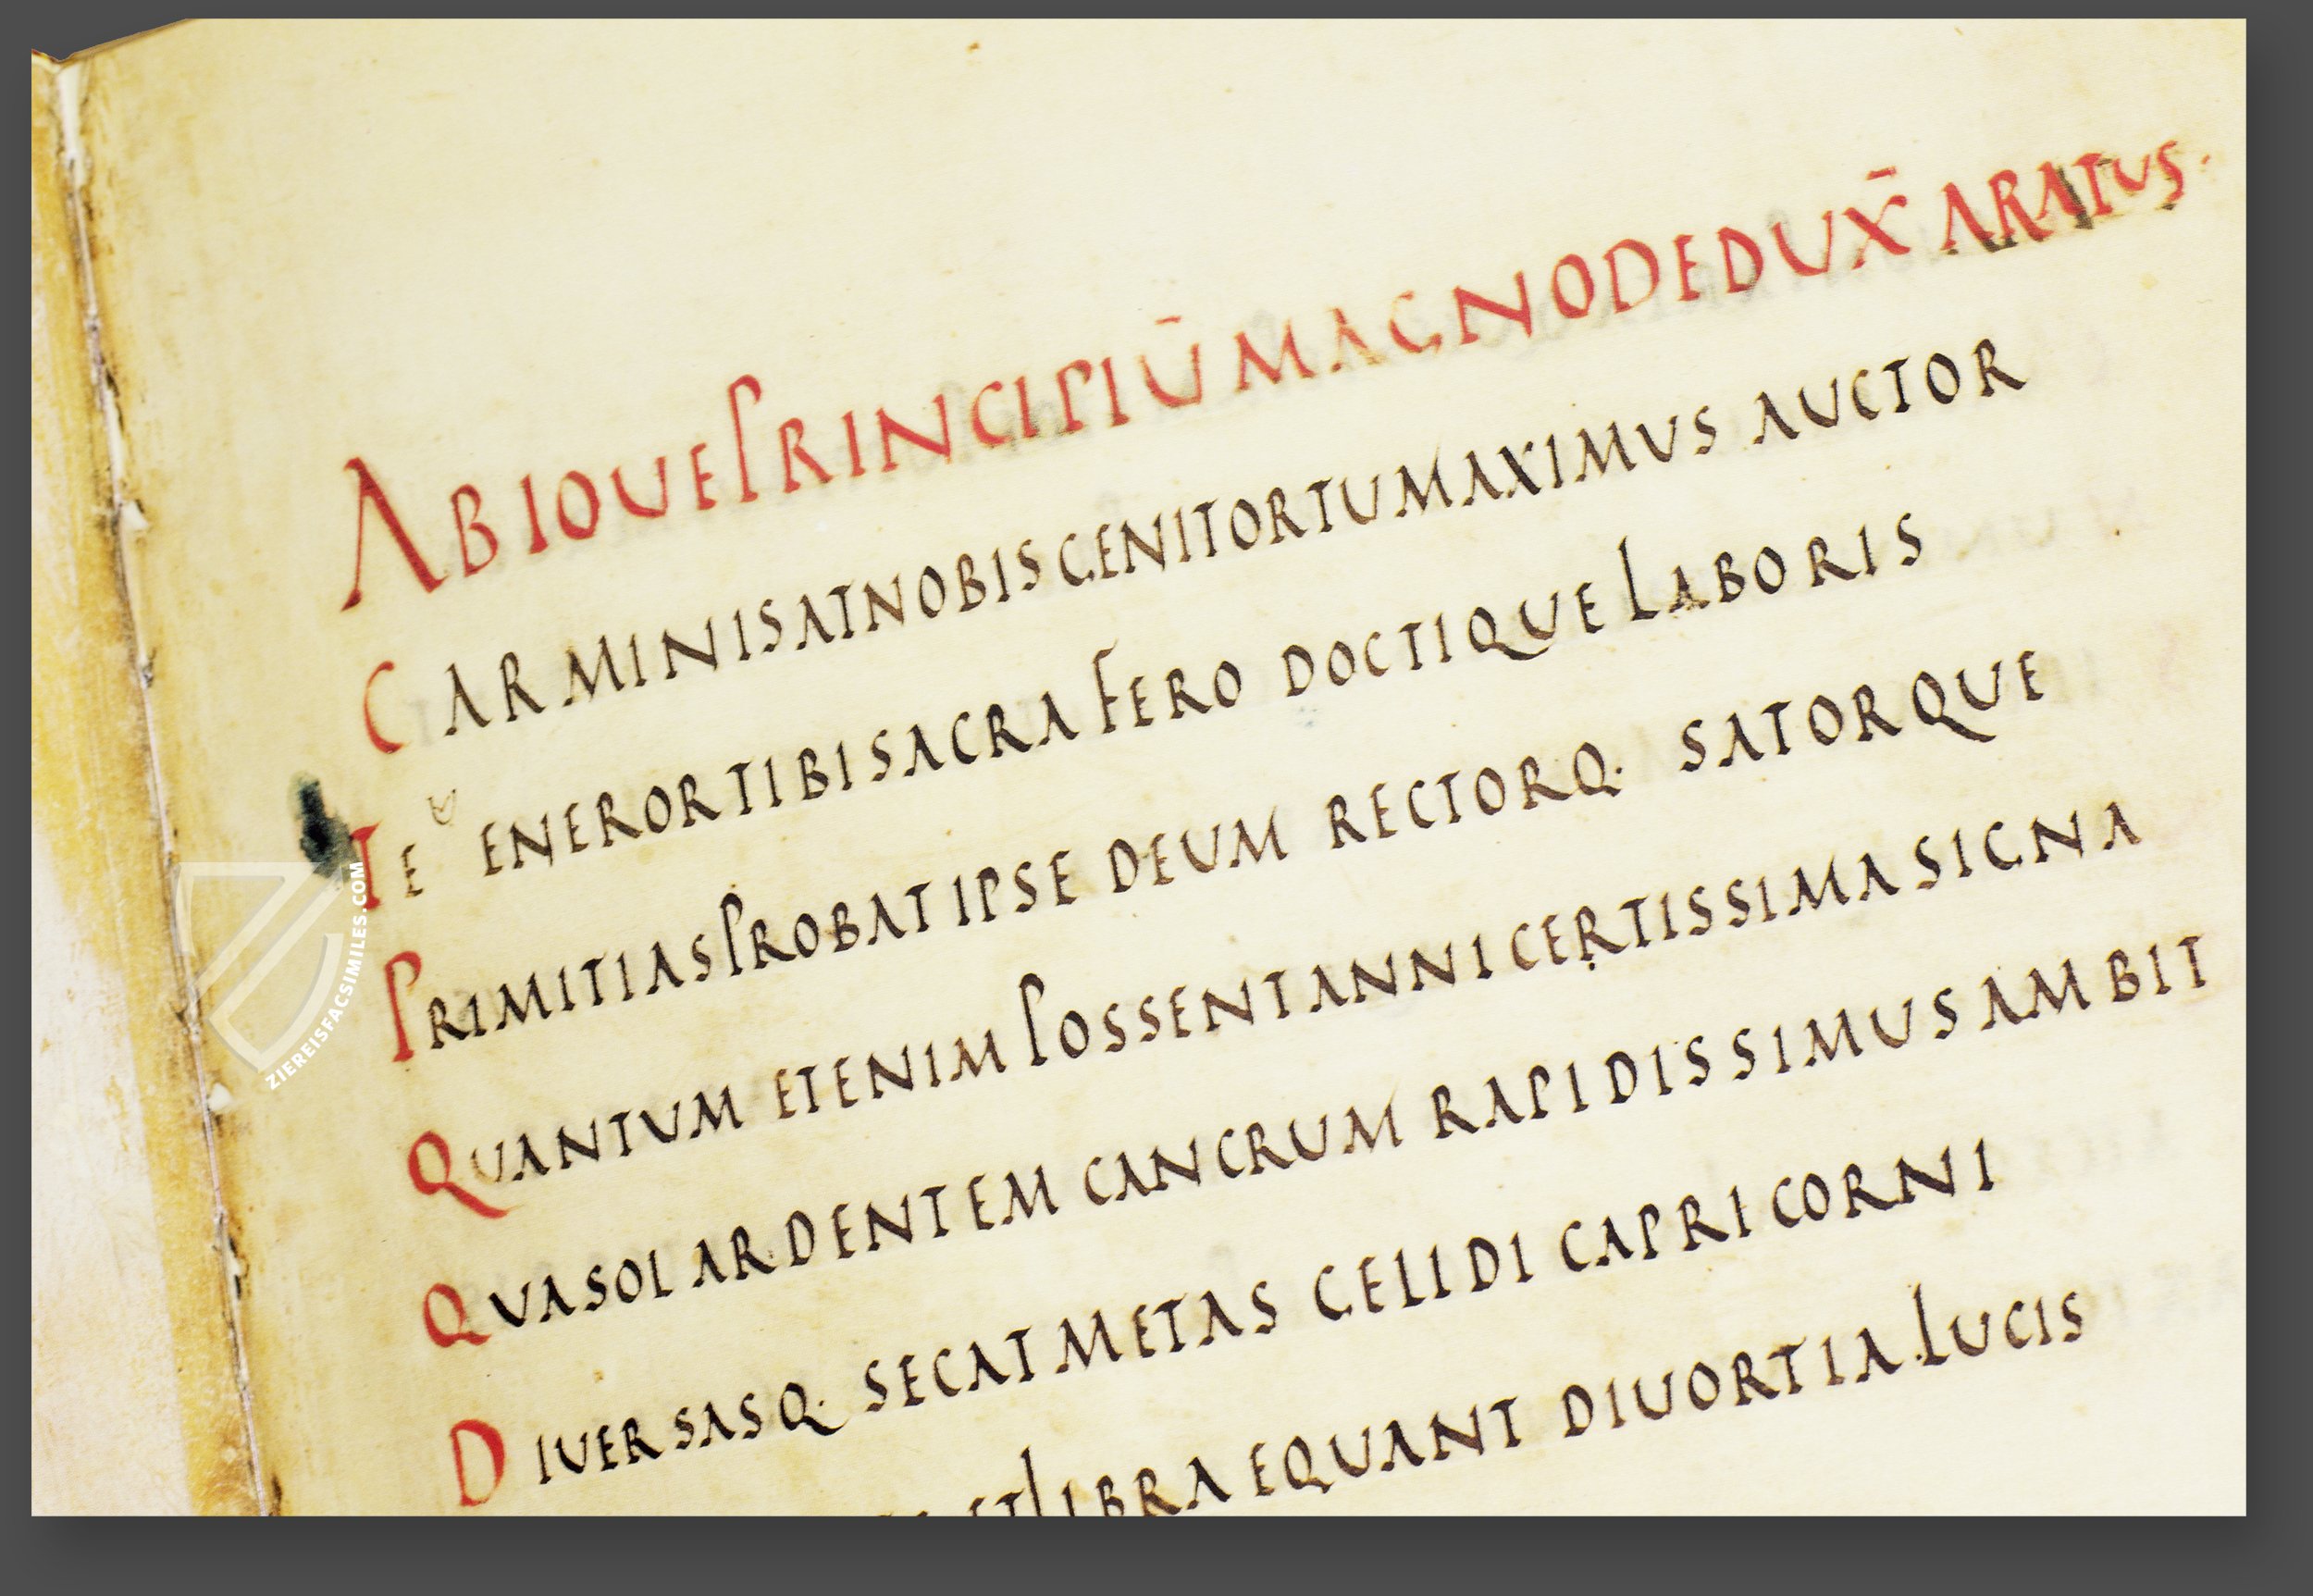 ABIOUEPRINCIPIŪ MAGNO DEDUX̄ ARATUS·
CARMINIS AT NOBIS GENITOR TU MAXIMUS AUCTOR
TE UENEROR TIBI SACRA FERO DOCTIQUE LABORIS
PRIMITIAS PROBAT IPSE DEUM RECTORQ· SATORQUE
QUANTUM ETENIM POSSENT ANNI CERTISSIMA SIGNA
QUA SOL ARDENTEM CANCRUM RAPIDISSIMUS AMBIT
DIUERSASQ· SECAT METAS GELIDI CAPRICORNI
ET LIBRA EQUANT DIUORTIA LUCIS
ZIEREISFACSIMILES.COM